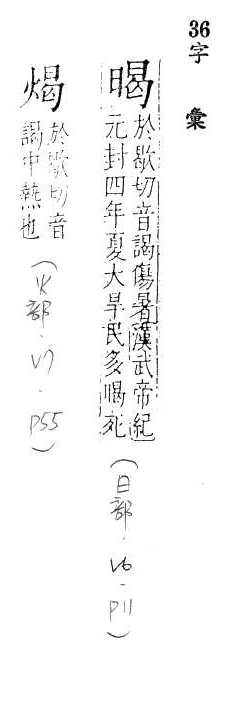 36字 彙
暍 於歇切音謁傷暑漢武帝紀
元封四年夏大旱民多暍死
(日部·V6·P11)
㷎 於歇切音
謁中熱也
(火部·V7·P55)